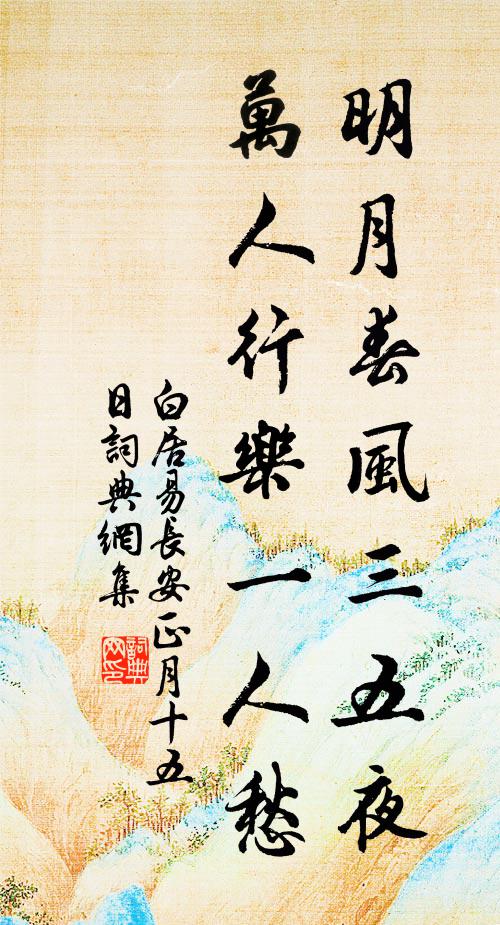 明月春風三五夜
萬人行樂一人愁
白居易長安正月十五
日詞典網集
詞典
网印